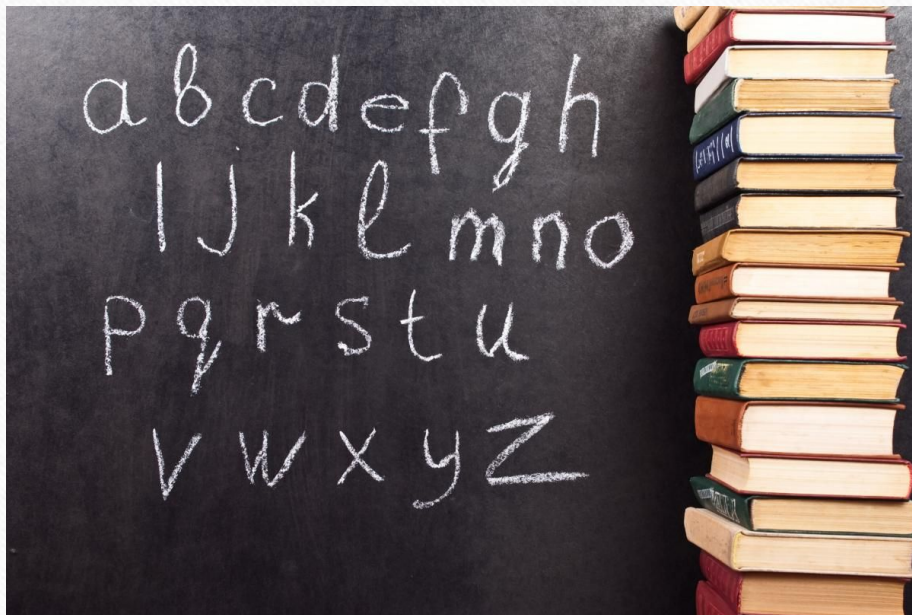 a b c d e f g h
l j k l m n o
p q r s t u
v w x y z